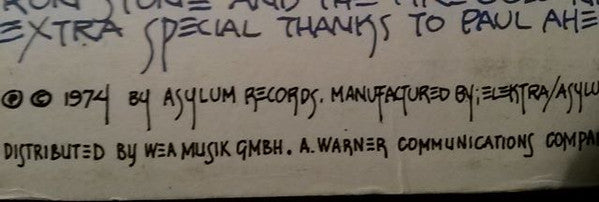 AND THE
EXTRA SPECIAL THANKS TO PAUL AHE
℗ © 1974 BY ASYLUM RECORDS. MANUFACTURED BY; ELEKTRA/ASYLU
DISTRIBUTED BY WEA MUSIK GMBH. A. WARNER COMMUNICATIONS COMPA